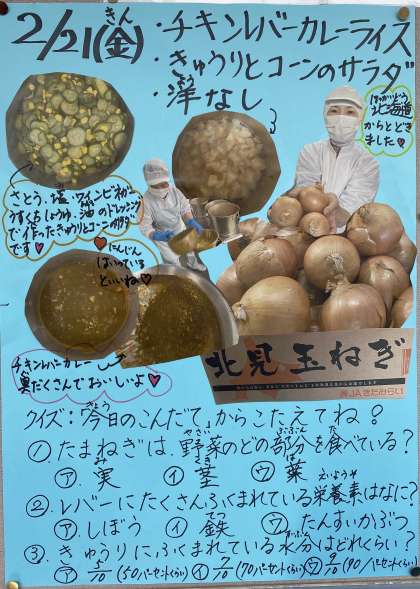 2/21(金)
きん
・チキンレバーカレーライス
・きゅうりとコーンのサラダ
・洋なし
よう
ほっかいどう
北海道
からとどき
ました♡
さとう、塩、ワインビネガー、
うすくちしょうゆ、油のドレッシング
で作ったきゅうりとコーンのサラダ
です♡
にんじん
はいっている
といいね♡
チキンレバーカレー
具だくさんでおいしいよ♡
北見玉ねぎ
JAきたみらい
クイズ:今日のこんだて、からこたえてね!
きょう
①たまねぎは、野菜のどの部分を食べている?
やさい ぶぶん た
㋐実 ㋑茎 ㋒葉
み くき は
えいようそ
②レバーにたくさんふくまれている栄養素はなに?
㋐しぼう ㋑鉄 ㋒たんすいかぶつ
てつ
③きゅうりに、ふくまれている水分はどれくらい?
すいぶん
㋐5/10(50パーセントくらい)㋑7/10(70パーセントくらい)㋒9/10(90パーセントくらい)